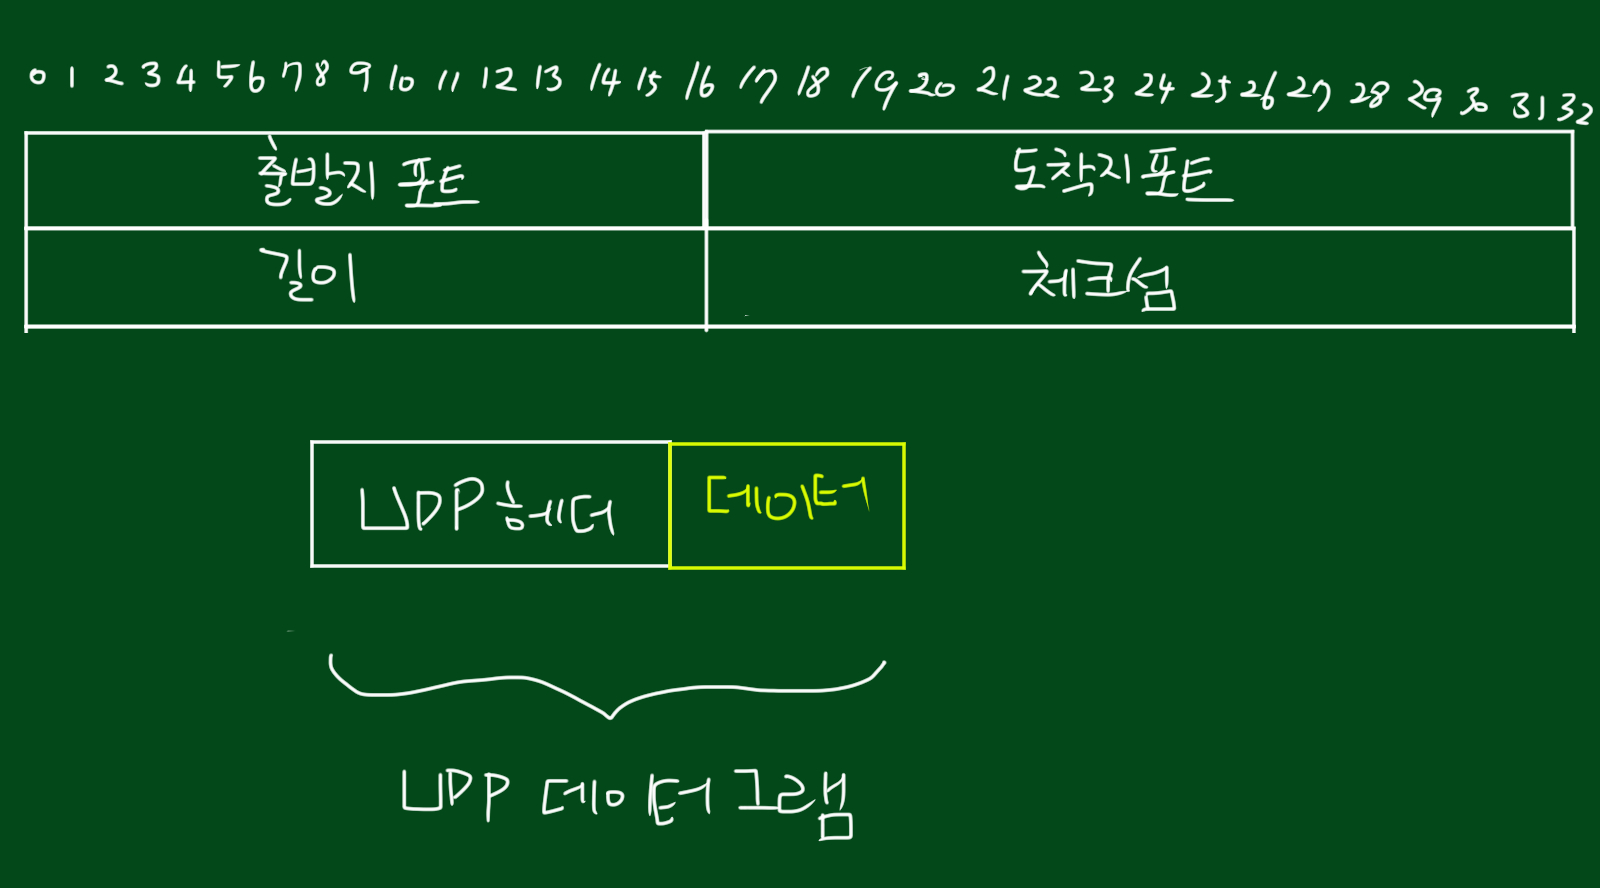 0 1 2 3 4 5 6 7 8 9 10 11 12 13 14 15 16 17 18 19 20 21 22 23 24 25 26 27 28 29 30 31 32
출발지 포트 도착지 포트
길이 체크섬
UDP 헤더 데이터
UDP 데이터그램